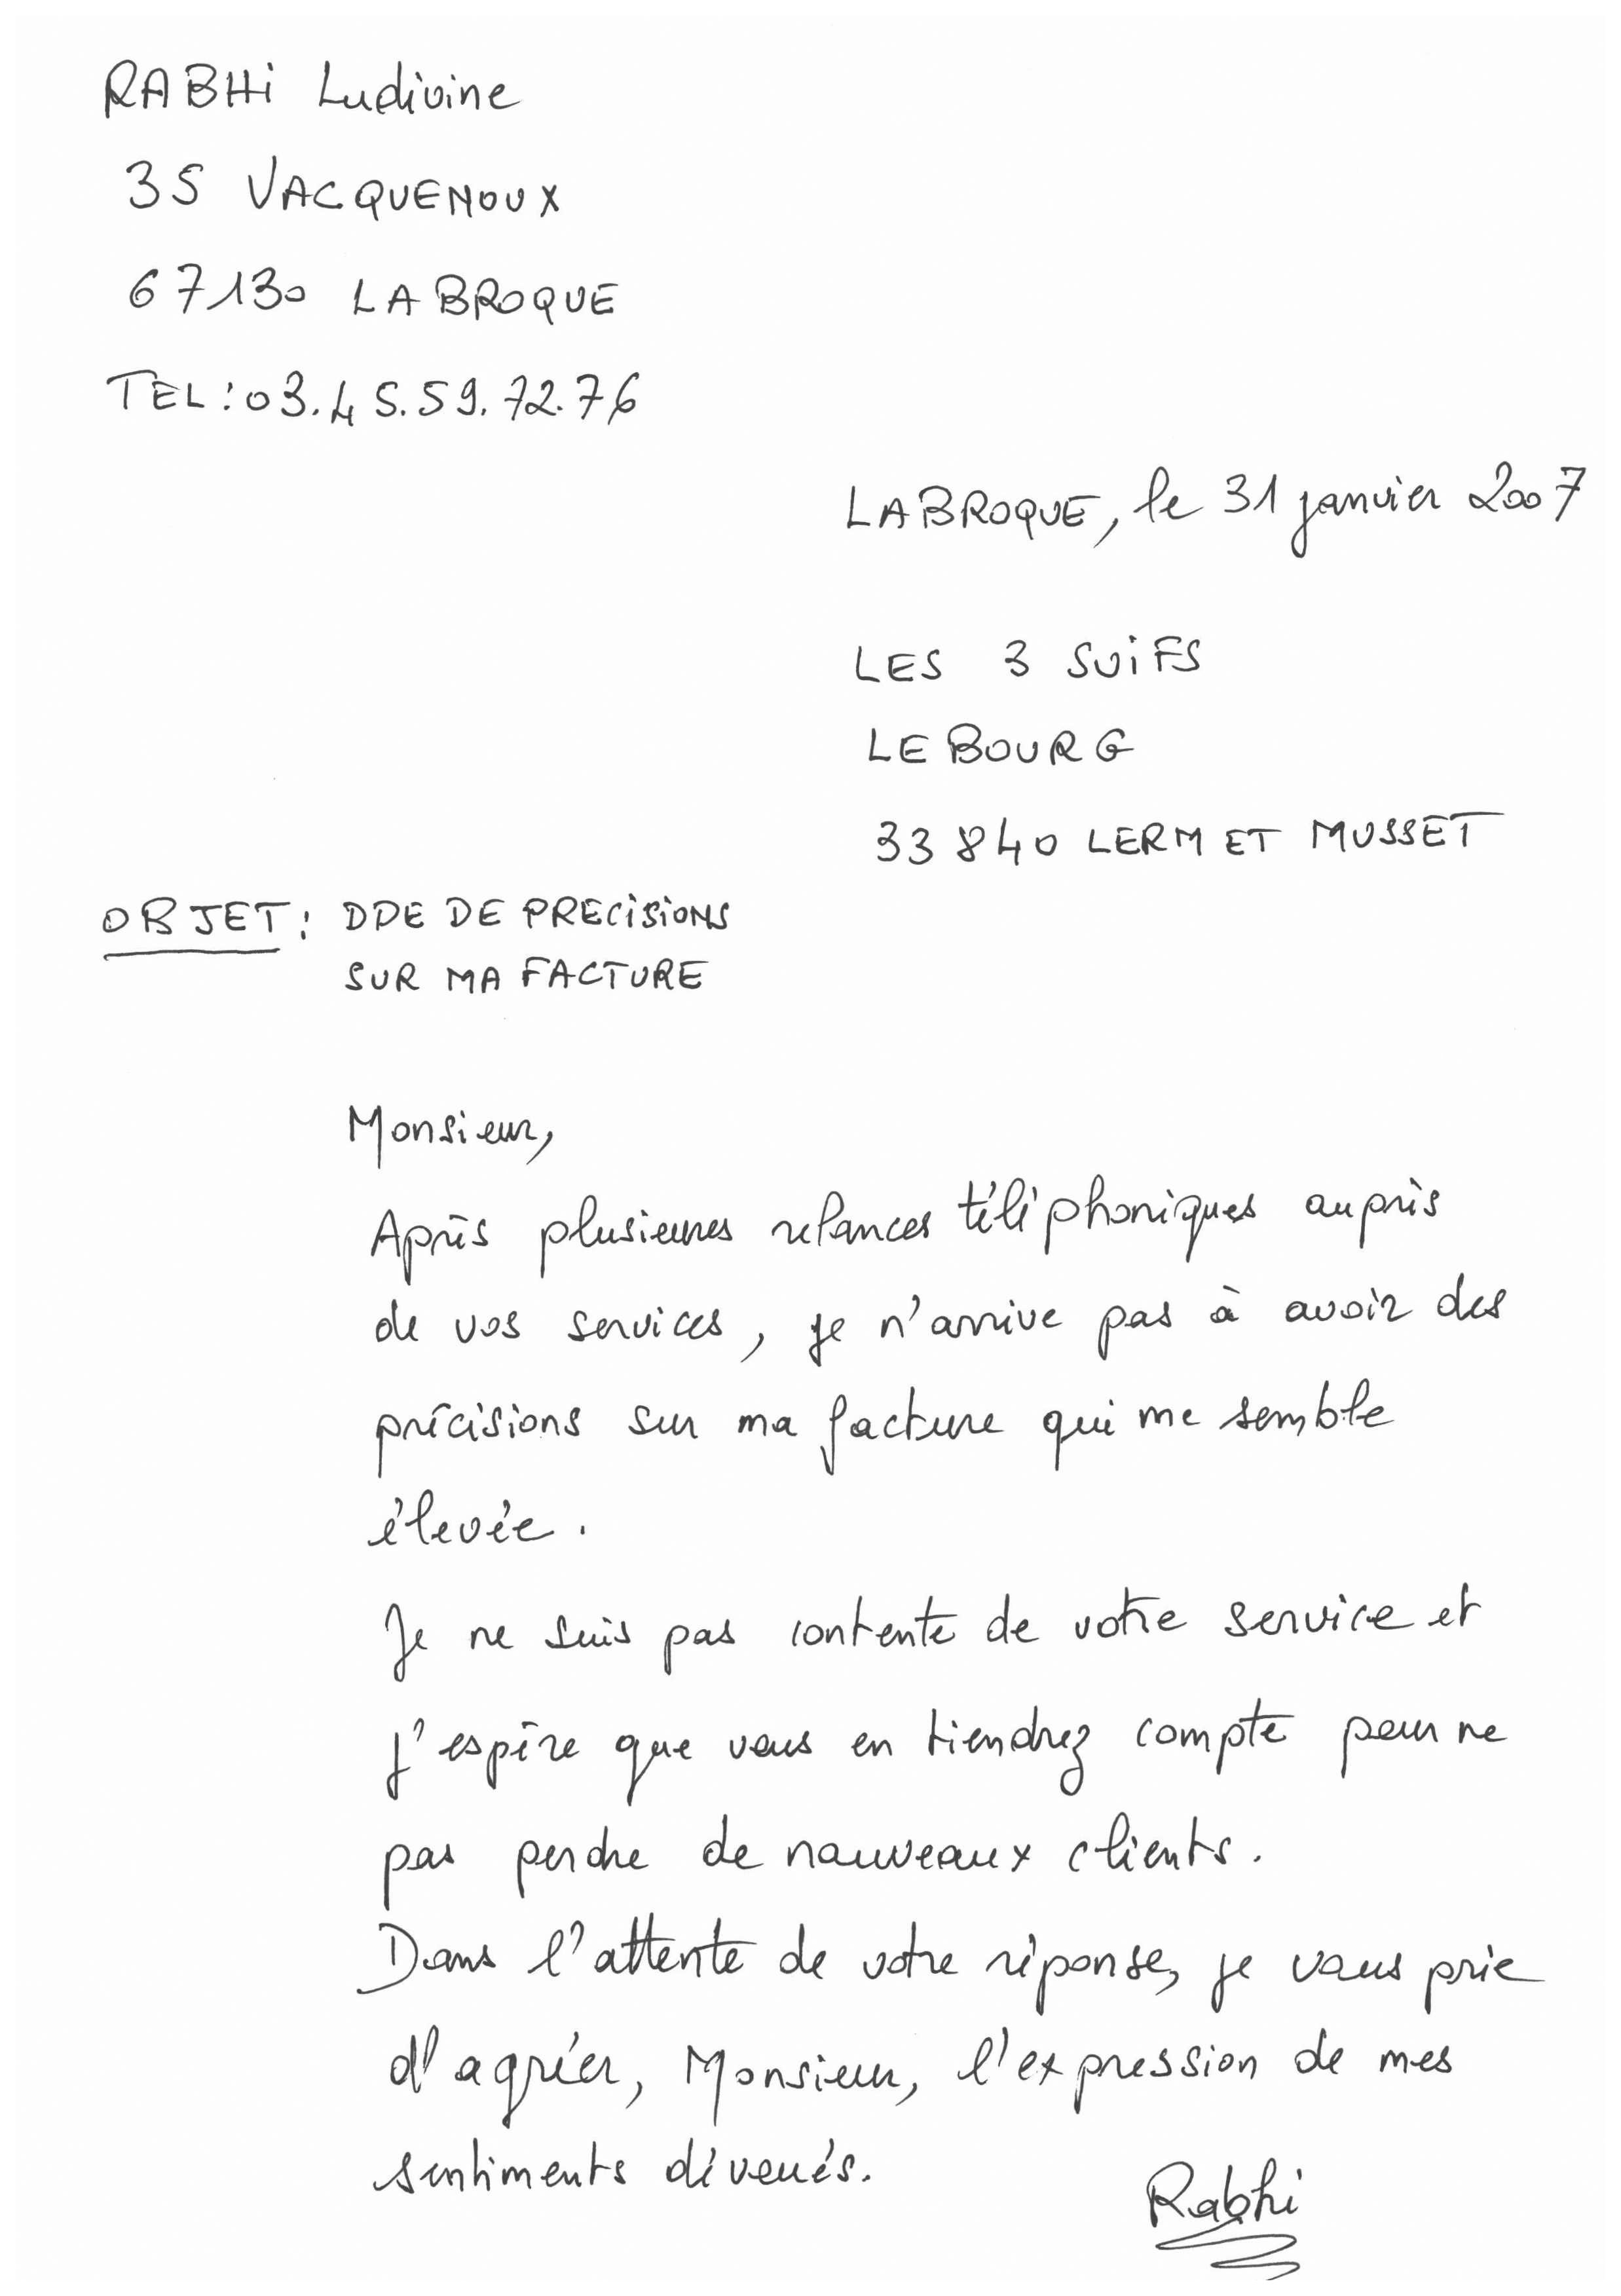 RABHi Ludivine
35 VACQUENOUX
67130 LA BROQUE
TEL:03.45.59.72.76
LA BROQUE, le 31 janvier 2007
LES 3 SUiFS
LE BOURG
33840 LERM ET MUSSET
OBJET: DDE DE PRECiSiONS
SUR MA FACTURE
Monsieur,
Après plusieures relances téléphoniques auprès
de vos services, je n'arrive pas à avoir des
précisions sur ma facture qui me semble
élevée.
Je ne suis pas contente de votre service et
j'espère que vous en tiendrez compte pour ne
pas perdre de nouveaux clients.
Dans l'attente de votre réponse, je vous prie
d'agréer, Monsieur, l'expression de mes
sentiments dévoués.
Rabhi